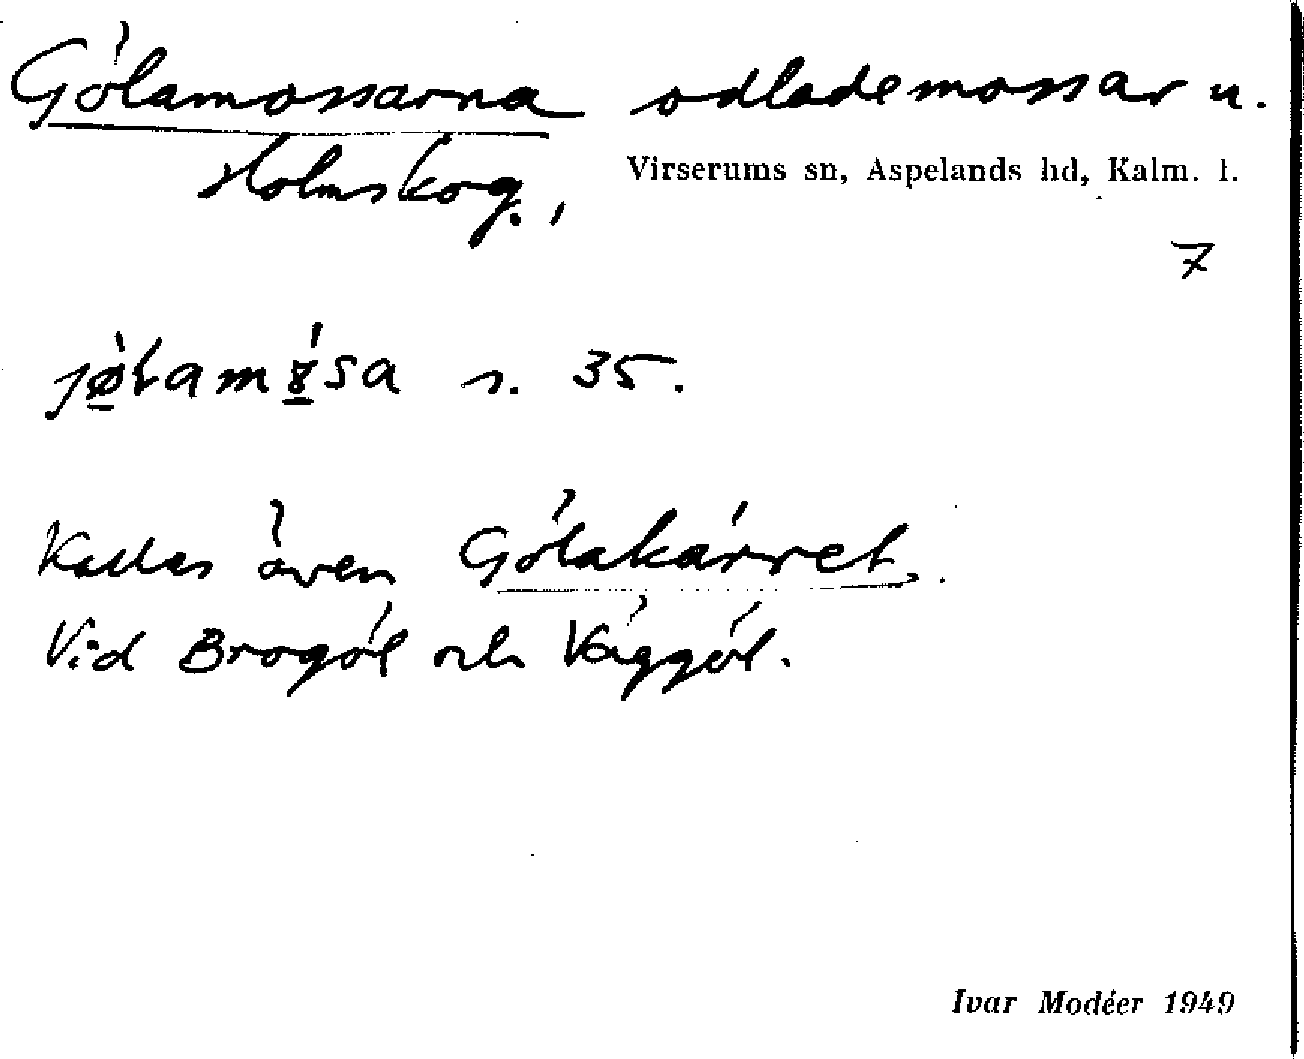 Gölamossarna odlade mossar u.
Holmskog.,
Virserums sn, Aspelands hd, Kalm. l.
7
s. 35.
Kallas även Gölakärret.
Vid Brogöl och Väggöl.
Ivar Modéer 1949